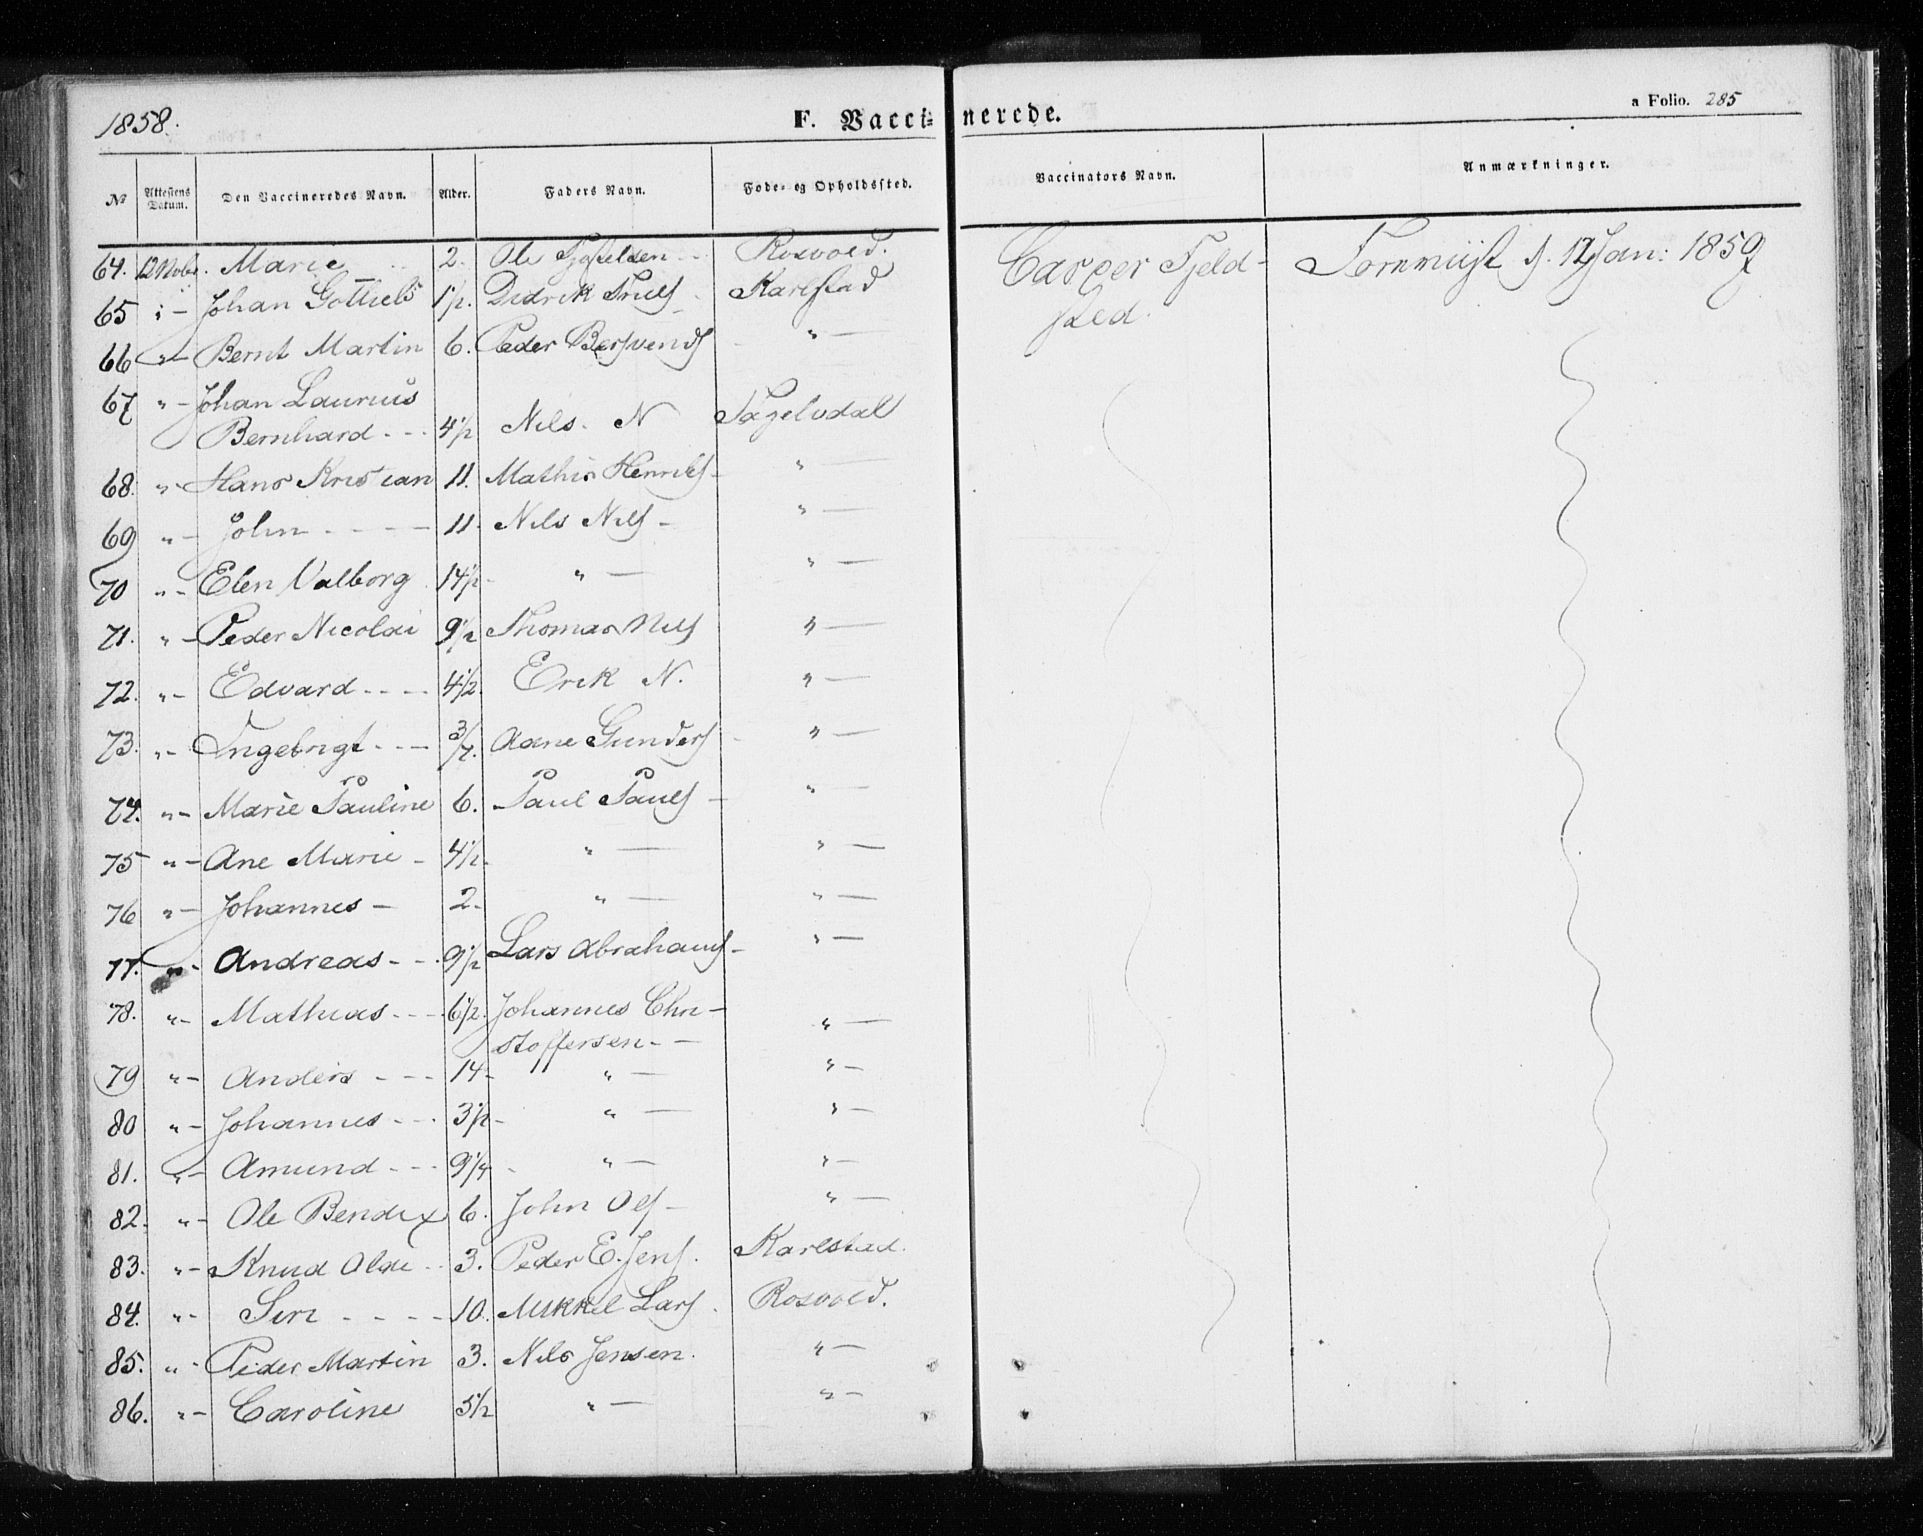 1858.
F. Vaccinerede.
a Folio. 285
№ Attestens Datum. Den Vaccineredes Navn. Alder. Faders Navn. Føde- og Opholdssted. Vaccinators Navn. Anmærkninger.
64. 12 Nobr. Marie 2. Ole Rosvold. Casper Fjeld- d. 17 Jan: 1859
65 " - Johan Gottlieb 1½. Didrik Karlstad sted.
66 " - Bernt Martin 6. Peder Bersvends " —
67 " - Johan Laurius
Bernhard - - - 4½ Nils. N Tagelvdal
68. " - Hans Kristian 11. Mathis Henriks - " —
69 " - John - - - - 11. Nils Nils - " —
70 " - Elen Valborg 14½ - " — " —
71. " - Peder Nicolai 9½ Thomas Nils " —
72. " - Edvard - - - - 4½. Erik N. " —
73. " - Ingebrigt - - - 3/4. Aane Gunders - " —
74. " - Marie Pauline 6. Paul Pauls - " —
75 " - Ane Marie - 4½ - " — " —
76 " - Johannes - 2 - " — " —
77. " - Andreas - - - 9½ Lars Abrahams - " —
78. " - Mathias - - - 6½. Johannes Chri-
stoffersen - - " —
79 " - Anders - - - 14 - " — " —
80 " - Johannes - - - 3½ - " — " —
81. " - Amund - - - 9¼ - " — " —
82. " - Ole Bendix 6. John Ols - " —
83. " - Knud Olai - - 3. Peder E. Jens. Karlstad.
84. " - Siri - - - - 10. Mikkel Lars. Rosvold.
85. " - Peder Martin 3. Nils Jensen. " —
86. " - Caroline 5½ " — " —